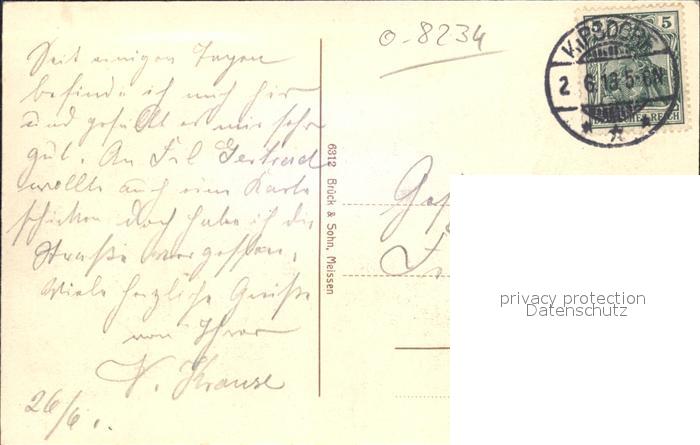 O-8234
Seit einigen Tagen
befinde ich mich hier
und gefällt es mir sehr
gut. An Frl Gertrud
wollte auch eine Karte
schicken doch habe ich die
Straße vergessen.
Viele herzliche Grüße
von Ihrer
Krause
26/6
6312 Brück & Sohn, Meissen
KIPSDORF
5
DEUTSCHES REICH
privacy protection
Datenschutz